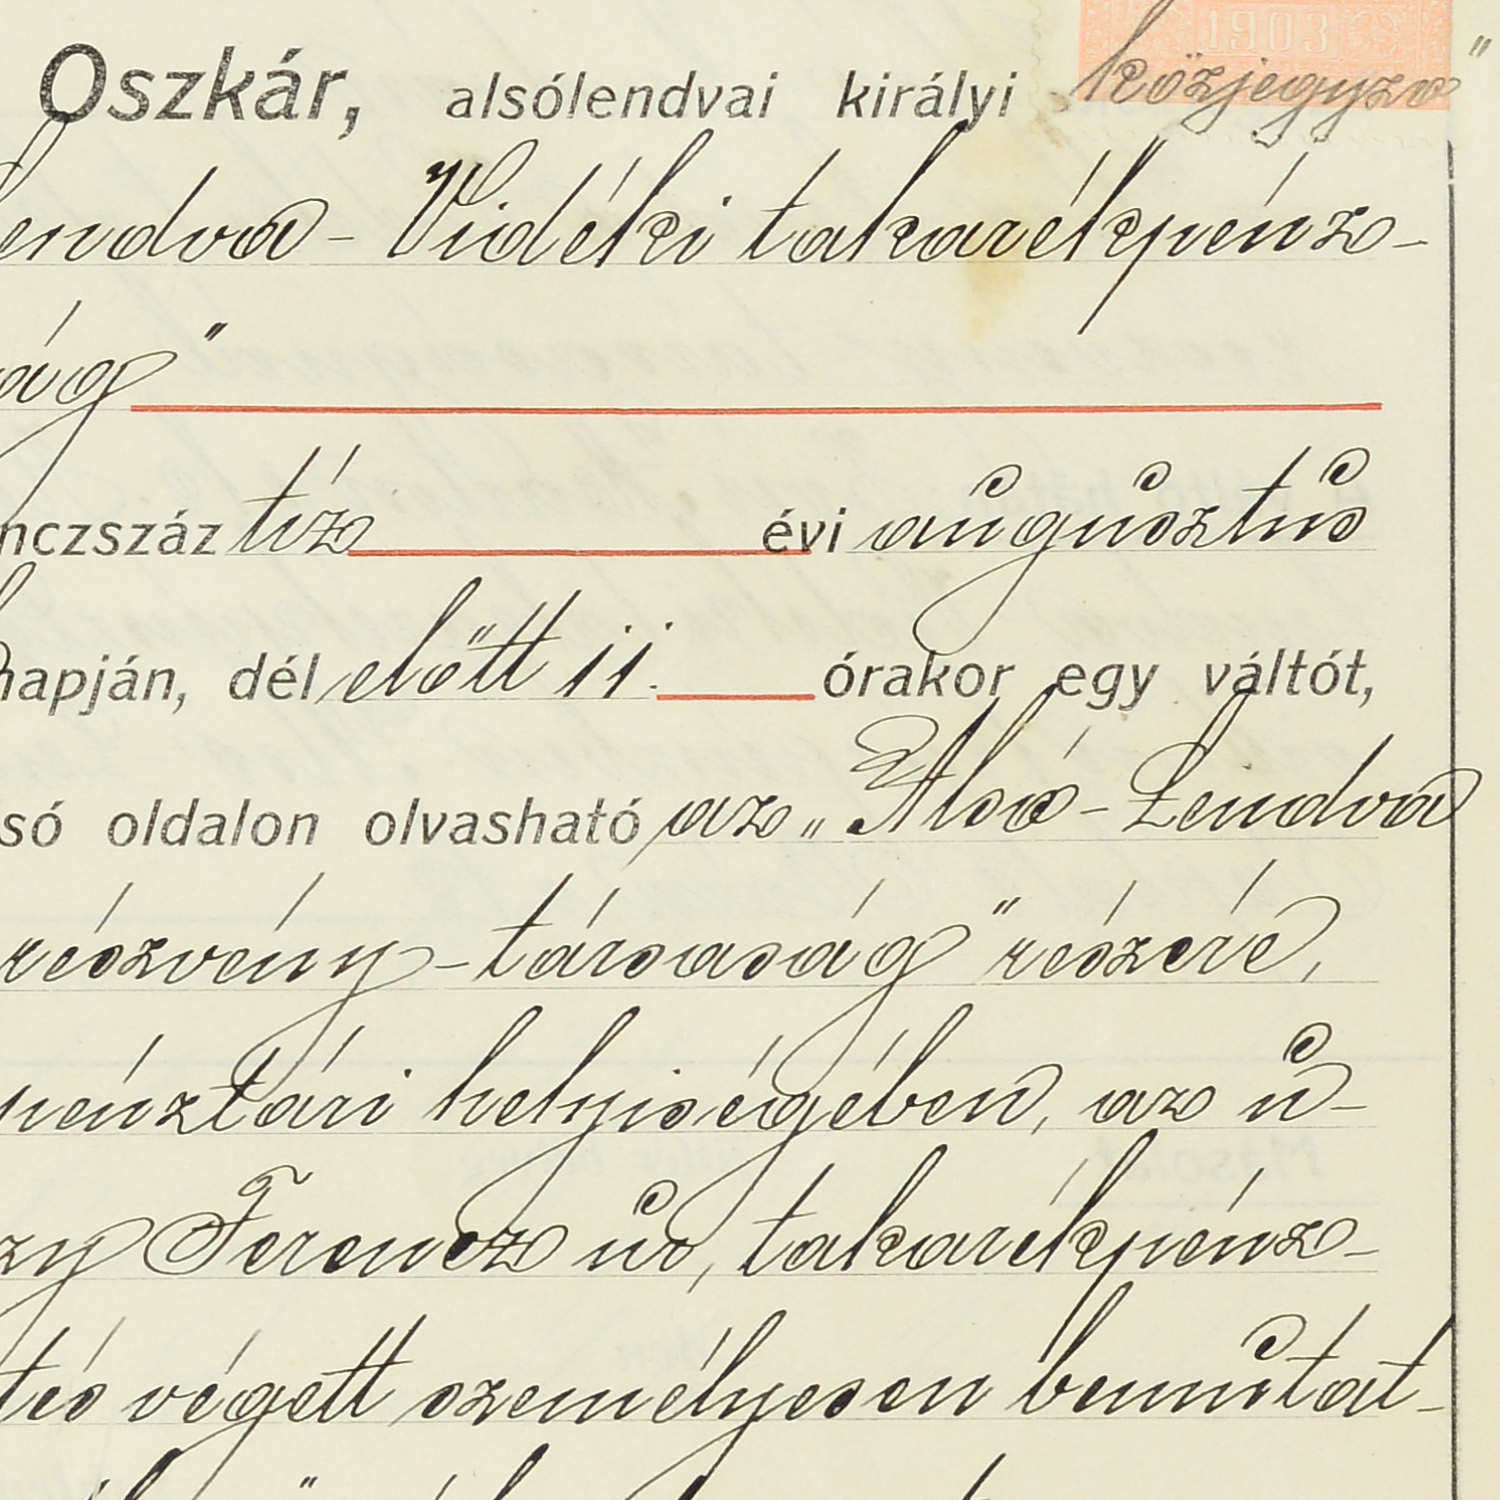 1903
Oszkár, alsólendvai királyi közjegyző"
Lendva - Vidéki takarékpénz-
ág"
nczszáz tíz évi augusztus
napján, dél előtt 11. órakor egy váltót,
só oldalon olvasható az „Alsó-Lendva
részvény-társaság" részére,
pénztári helyiségében, az ü-
zy Ferencz úr, takarékpénz-
tés végett személyesen bemutat-